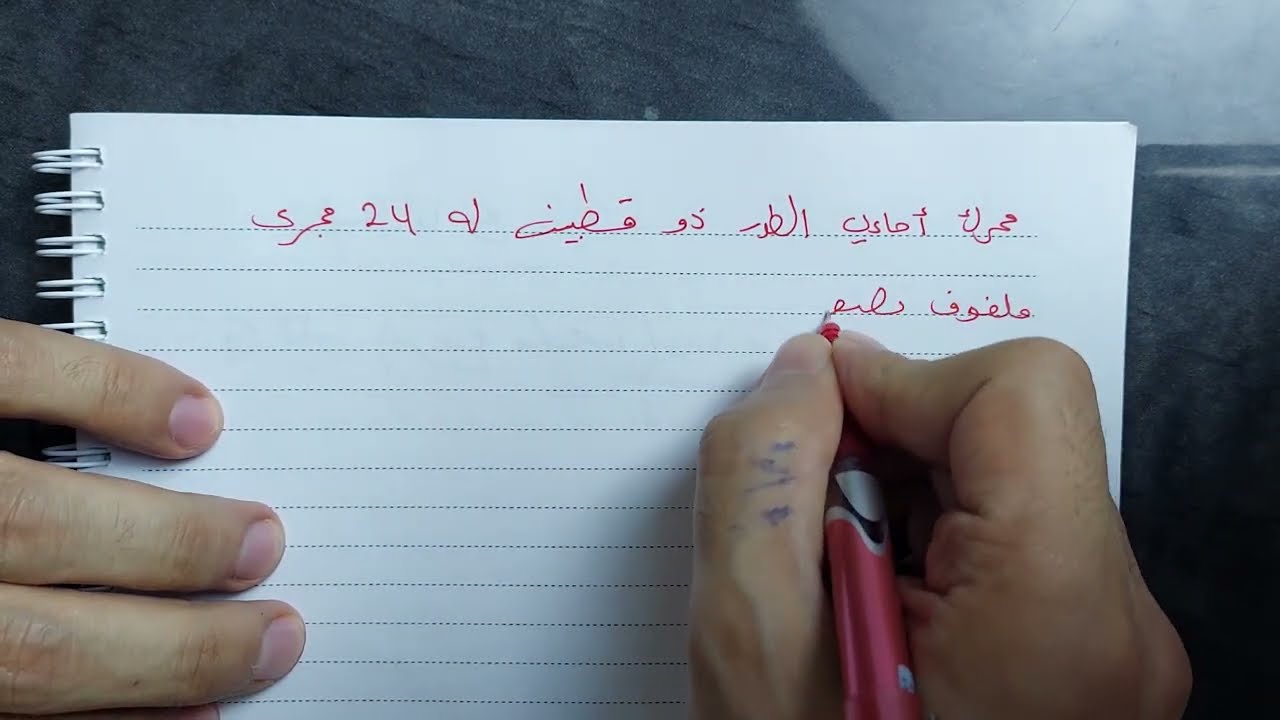 محرك أحادي الطور ذو قطبين له 24 مجرى
ملفوف